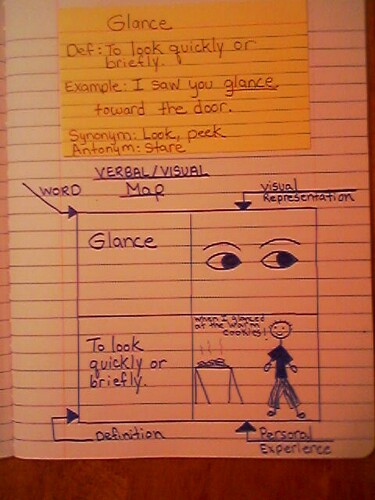 Glance
Def: To look quickly or
briefly.
Example: I saw you glance
toward the door.
Synonym: Look, peek
Antonym: Stare
VERBAL/VISUAL
Map
WORD
Visual
Representation
Glance
When I glanced
at the warm
cookies!
To look
quickly or
briefly.
Definition
Personal
Experience